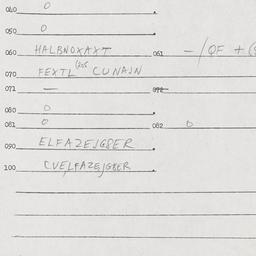 040 0
050 0
060 HALBNOXAXT 061 -/QF +
070 FEXTL CUNAIN
071 — 072
080 0
081 0 082 0
090 ELFAZEJGBER
100 CVE/FAZEJGBER